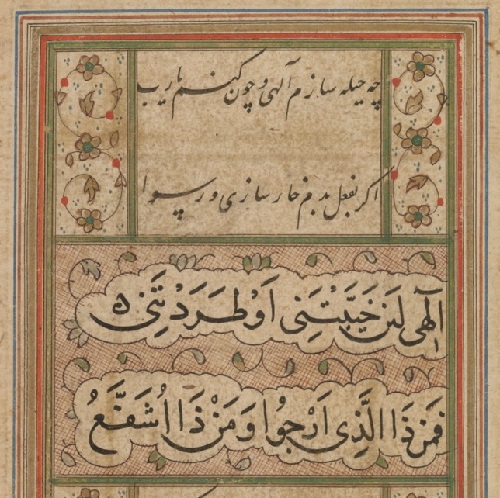 چه حیله سازم آلهی و چون کنم یارب
اکر بفعل بدم خار سازی و رسوا
الٰهِی لَئِن خَیَّبْتَنِی اَوْ طَرَدْتَنِی
فَمَن ذَا الَّذِی اَرْجُوا وَ مَنْ ذَا اُشَفَّعُ